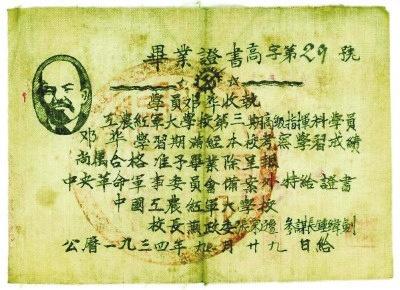 畢業證書高字第29號
學員邓华收執
工農紅軍大學校第三期高級指揮科學員
邓华學習期滿經本校考察學習成績
尚屬合格准予畢業除報
中央革命軍事委員會備案外特給證書
中國工農紅軍大學校
校長兼政委張宗遜 參謀長鍾緯劍
公曆一九三四年九月廿九日給